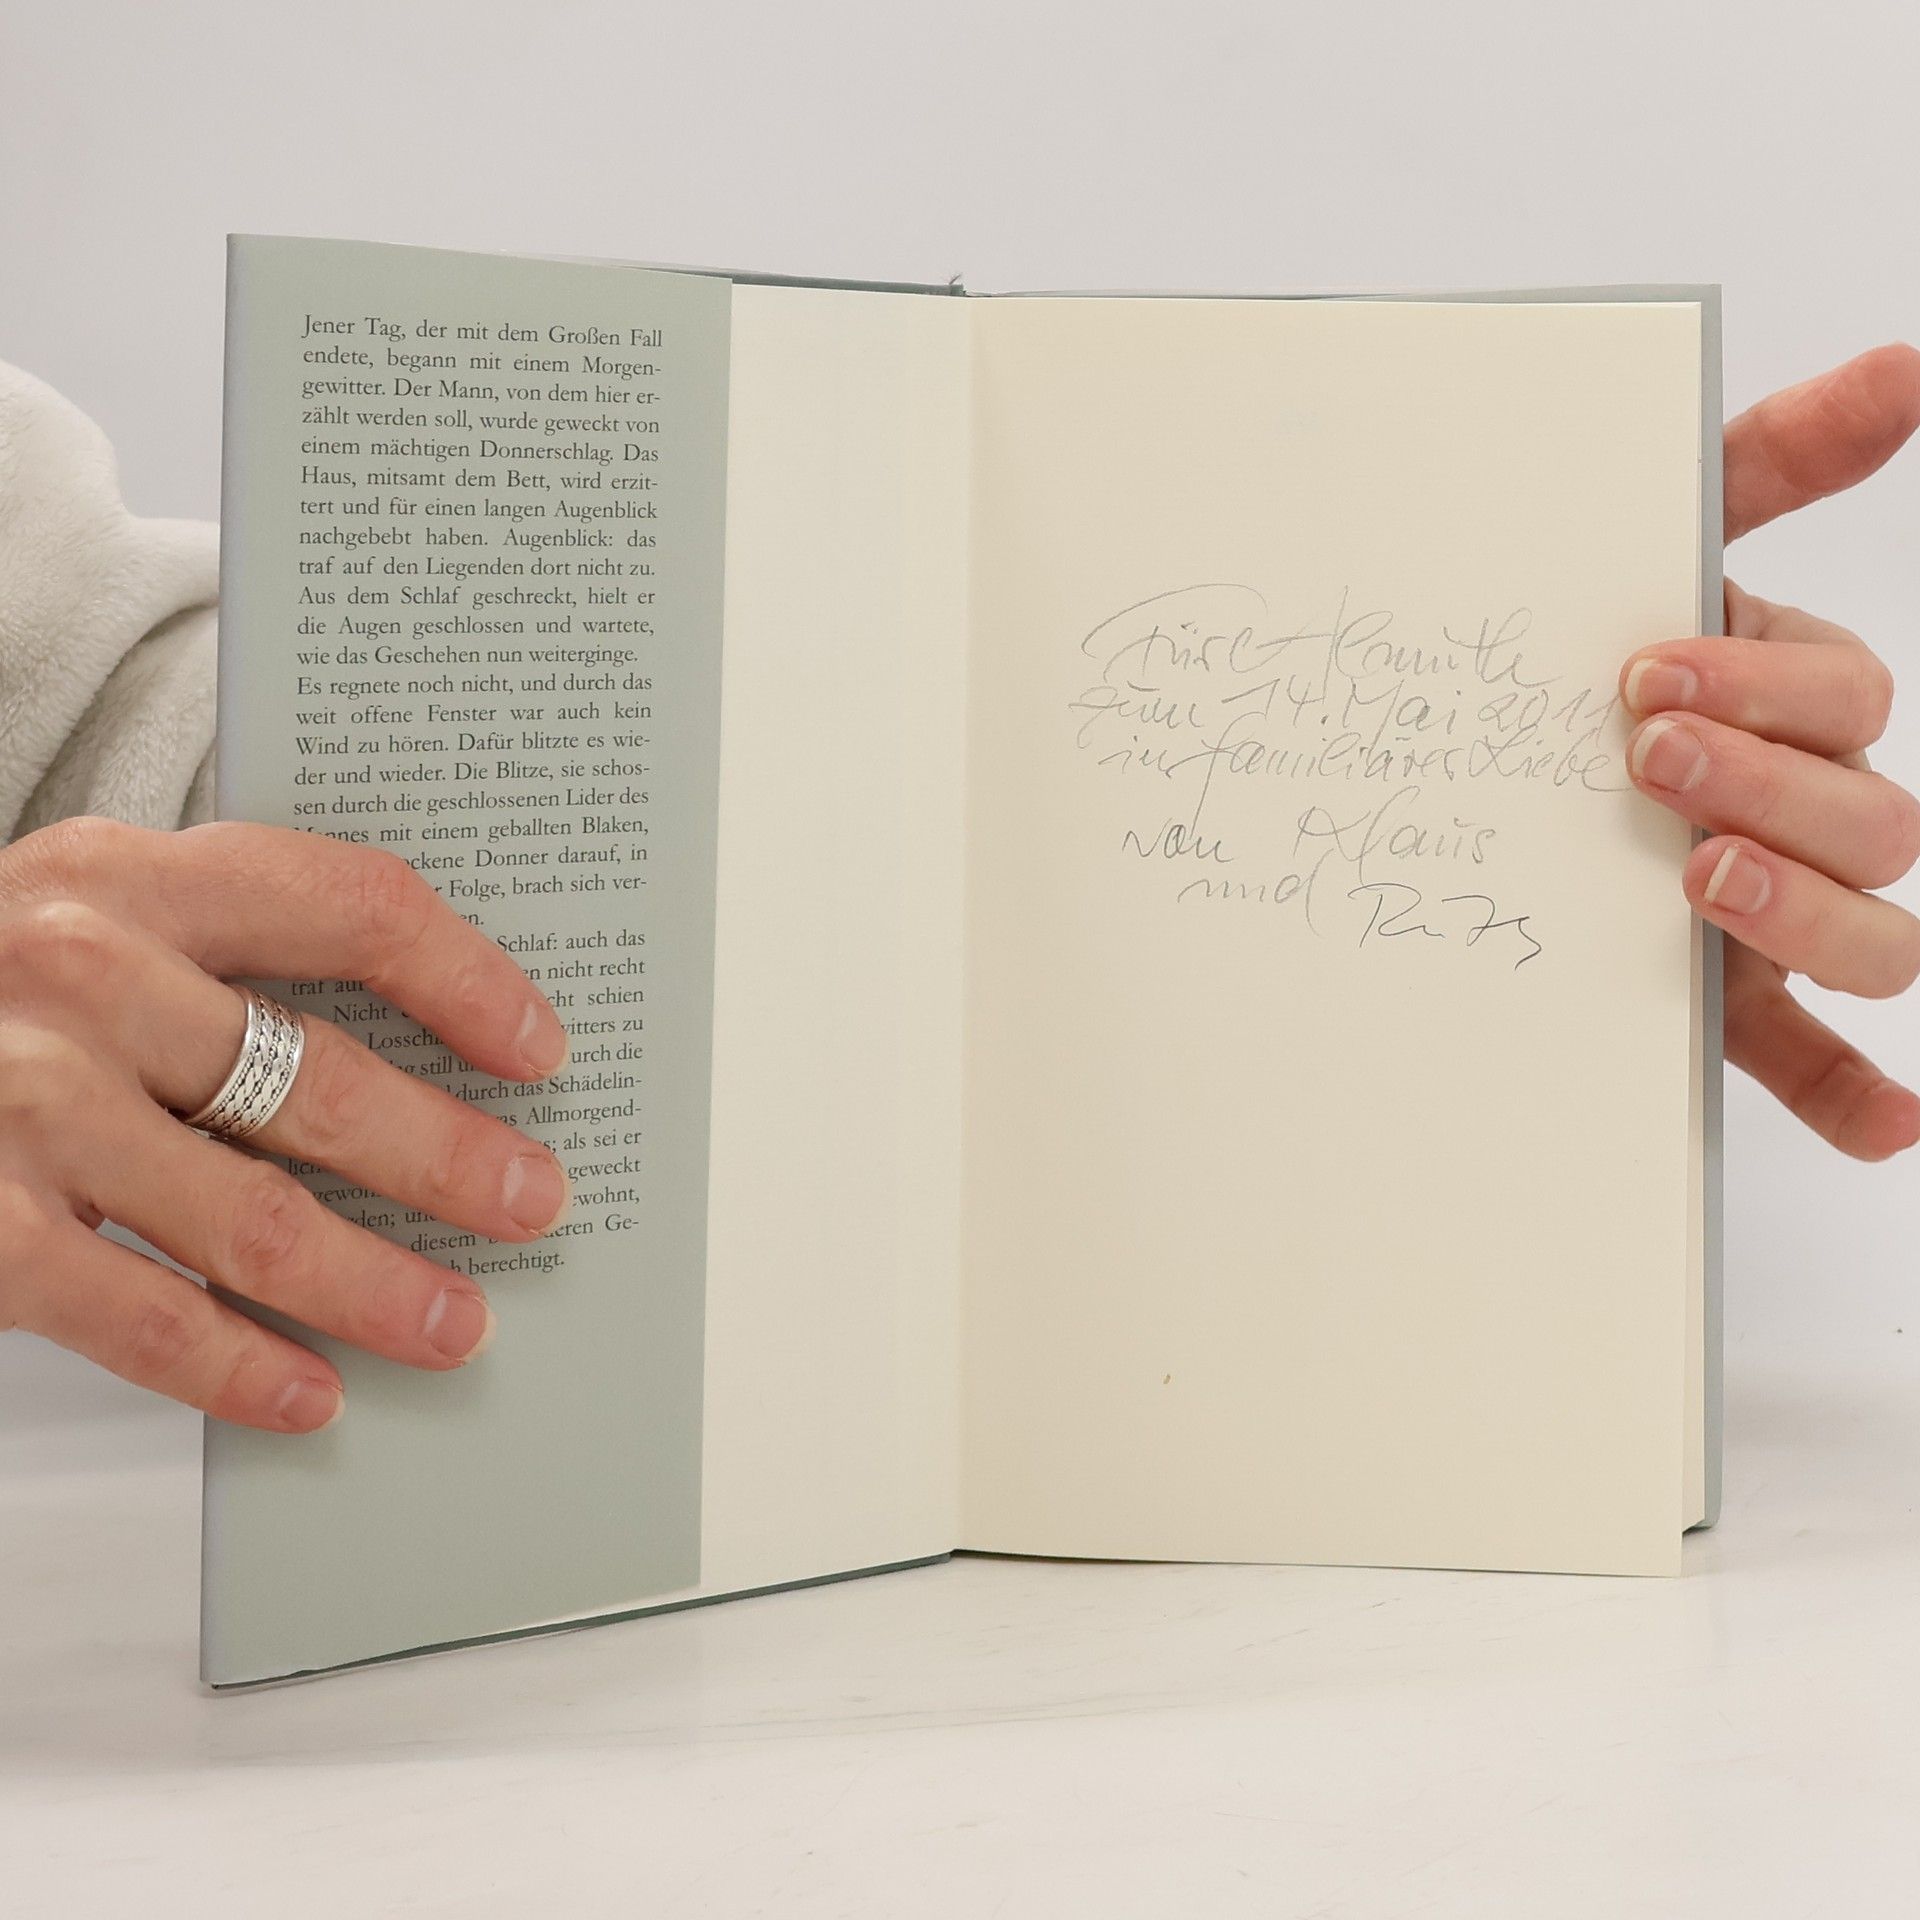 Jener Tag, der mit dem Großen Fall
endete, begann mit einem Morgen-
gewitter. Der Mann, von dem hier er-
zählt werden soll, wurde geweckt von
einem mächtigen Donnerschlag. Das
Haus, mitsamt dem Bett, wird erzit-
tert und für einen langen Augenblick
nachgebebt haben. Augenblick: das
traf auf den Liegenden dort nicht zu.
Aus dem Schlaf geschreckt, hielt er
die Augen geschlossen und wartete,
wie das Geschehen nun weiterginge.
Es regnete noch nicht, und durch das
weit offene Fenster war auch kein
Wind zu hören. Dafür blitzte es wie-
der und wieder. Die Blitze, sie schos-
sen durch die geschlossenen Lider des
mit einem geballten Blaken,
Donner darauf, in
Folge, brach sich ver-
Schlaf: auch das
nicht recht
traf
Nicht schien
zu
still durch die
durch das Schädelin-
Allmorgend-
als sei er
geweckt
diesem Ge-
berechtigt.
zum 14. Mai 2011
in familiärer Liebe
von Klaus
und